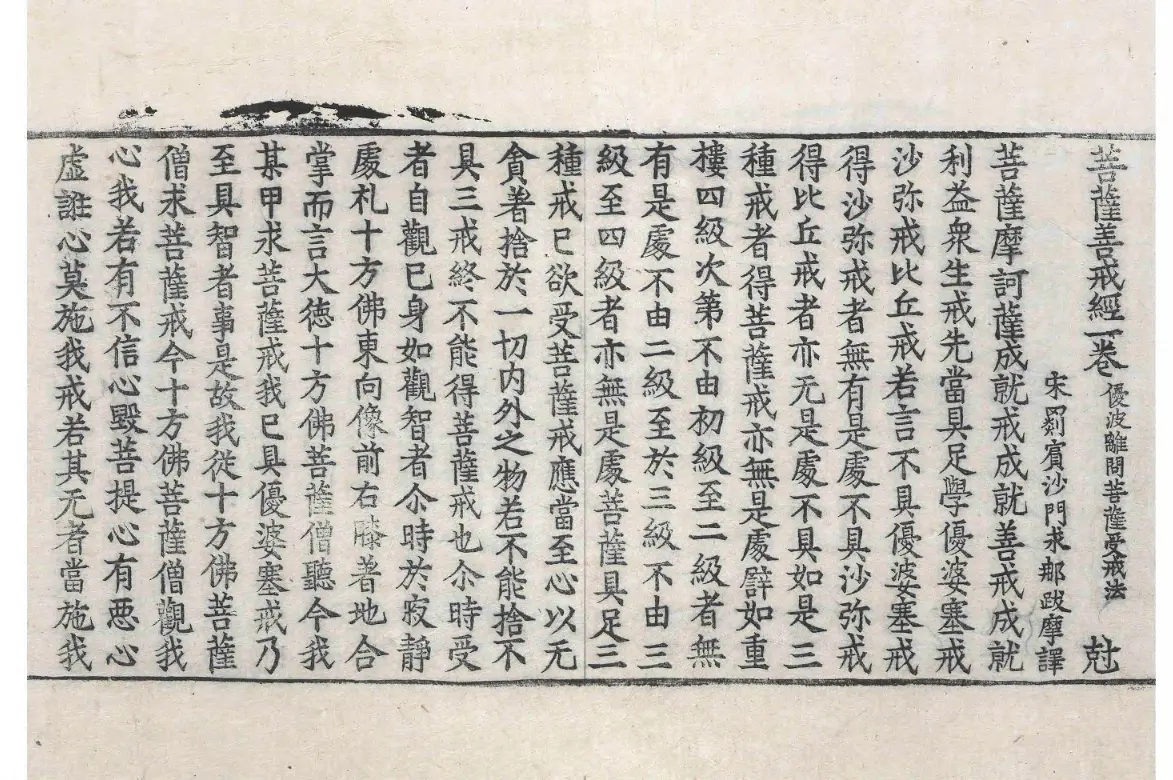 菩薩善戒經一卷 優波離問菩薩受戒法 尅
宋罽賓沙門求那跋摩譯
菩薩摩訶薩成就戒成就善戒成就
利益衆生戒先當具足學優婆塞戒
沙弥戒比丘戒若言不具優婆塞戒
得沙弥戒者無有是處不具沙弥戒
得比丘戒者亦无是處不具如是三
種戒者得菩薩戒亦無是處譬如重
樓四級次第不由初級至二級者無
有是處不由二級至於三級不由三
級至四級者亦無是處菩薩具足三
種戒已欲受菩薩戒應當至心以无
貪著捨於一切内外之物若不能捨不
具三戒終不能得菩薩戒也尒時受
者自觀已身如觀智者尒時於寂靜
處礼十方佛東向像前右膝著地合
掌而言大德十方佛菩薩僧聽今我
某甲求菩薩戒我已具優婆塞戒乃
至具智者事是故我從十方佛菩薩
僧求菩薩戒今十方佛菩薩僧觀我
心我若有不信心毀菩提心有惡心
虚誑心莫施我戒若其无者當施我